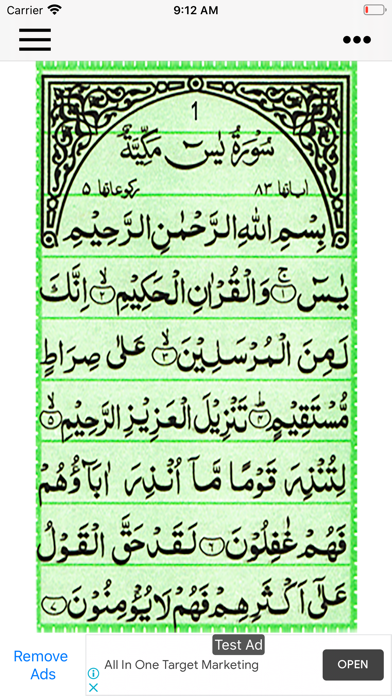 Carrier 9:12 AM
1
سُوْرَةُ يٰسٓ مَكِّيَّةٌ
اٰیاتها ٨٣ رکوعاتها ٥
بِسْمِ اللّٰهِ الرَّحْمٰنِ الرَّحِيْمِ
يٰسٓ ۚ ﴿١﴾ وَالْقُرْاٰنِ الْحَكِيْمِ ۙ ﴿٢﴾ اِنَّكَ
لَمِنَ الْمُرْسَلِيْنَ ۙ ﴿٣﴾ عَلٰى صِرَاطٍ
مُّسْتَقِيْمٍ ؕ ﴿٤﴾ تَنْزِيْلَ الْعَزِيْزِ الرَّحِيْمِ ۙ ﴿٥﴾
لِتُنْذِرَ قَوْمًا مَّاۤ اُنْذِرَ اٰبَآؤُهُمْ
فَهُمْ غٰفِلُوْنَ ﴿٦﴾ لَقَدْ حَقَّ الْقَوْلُ
عَلٰٓى اَكْثَرِهِمْ فَهُمْ لَا يُؤْمِنُوْنَ ﴿٧﴾
Remove Ads
Test Ad
All In One Target Marketing
OPEN